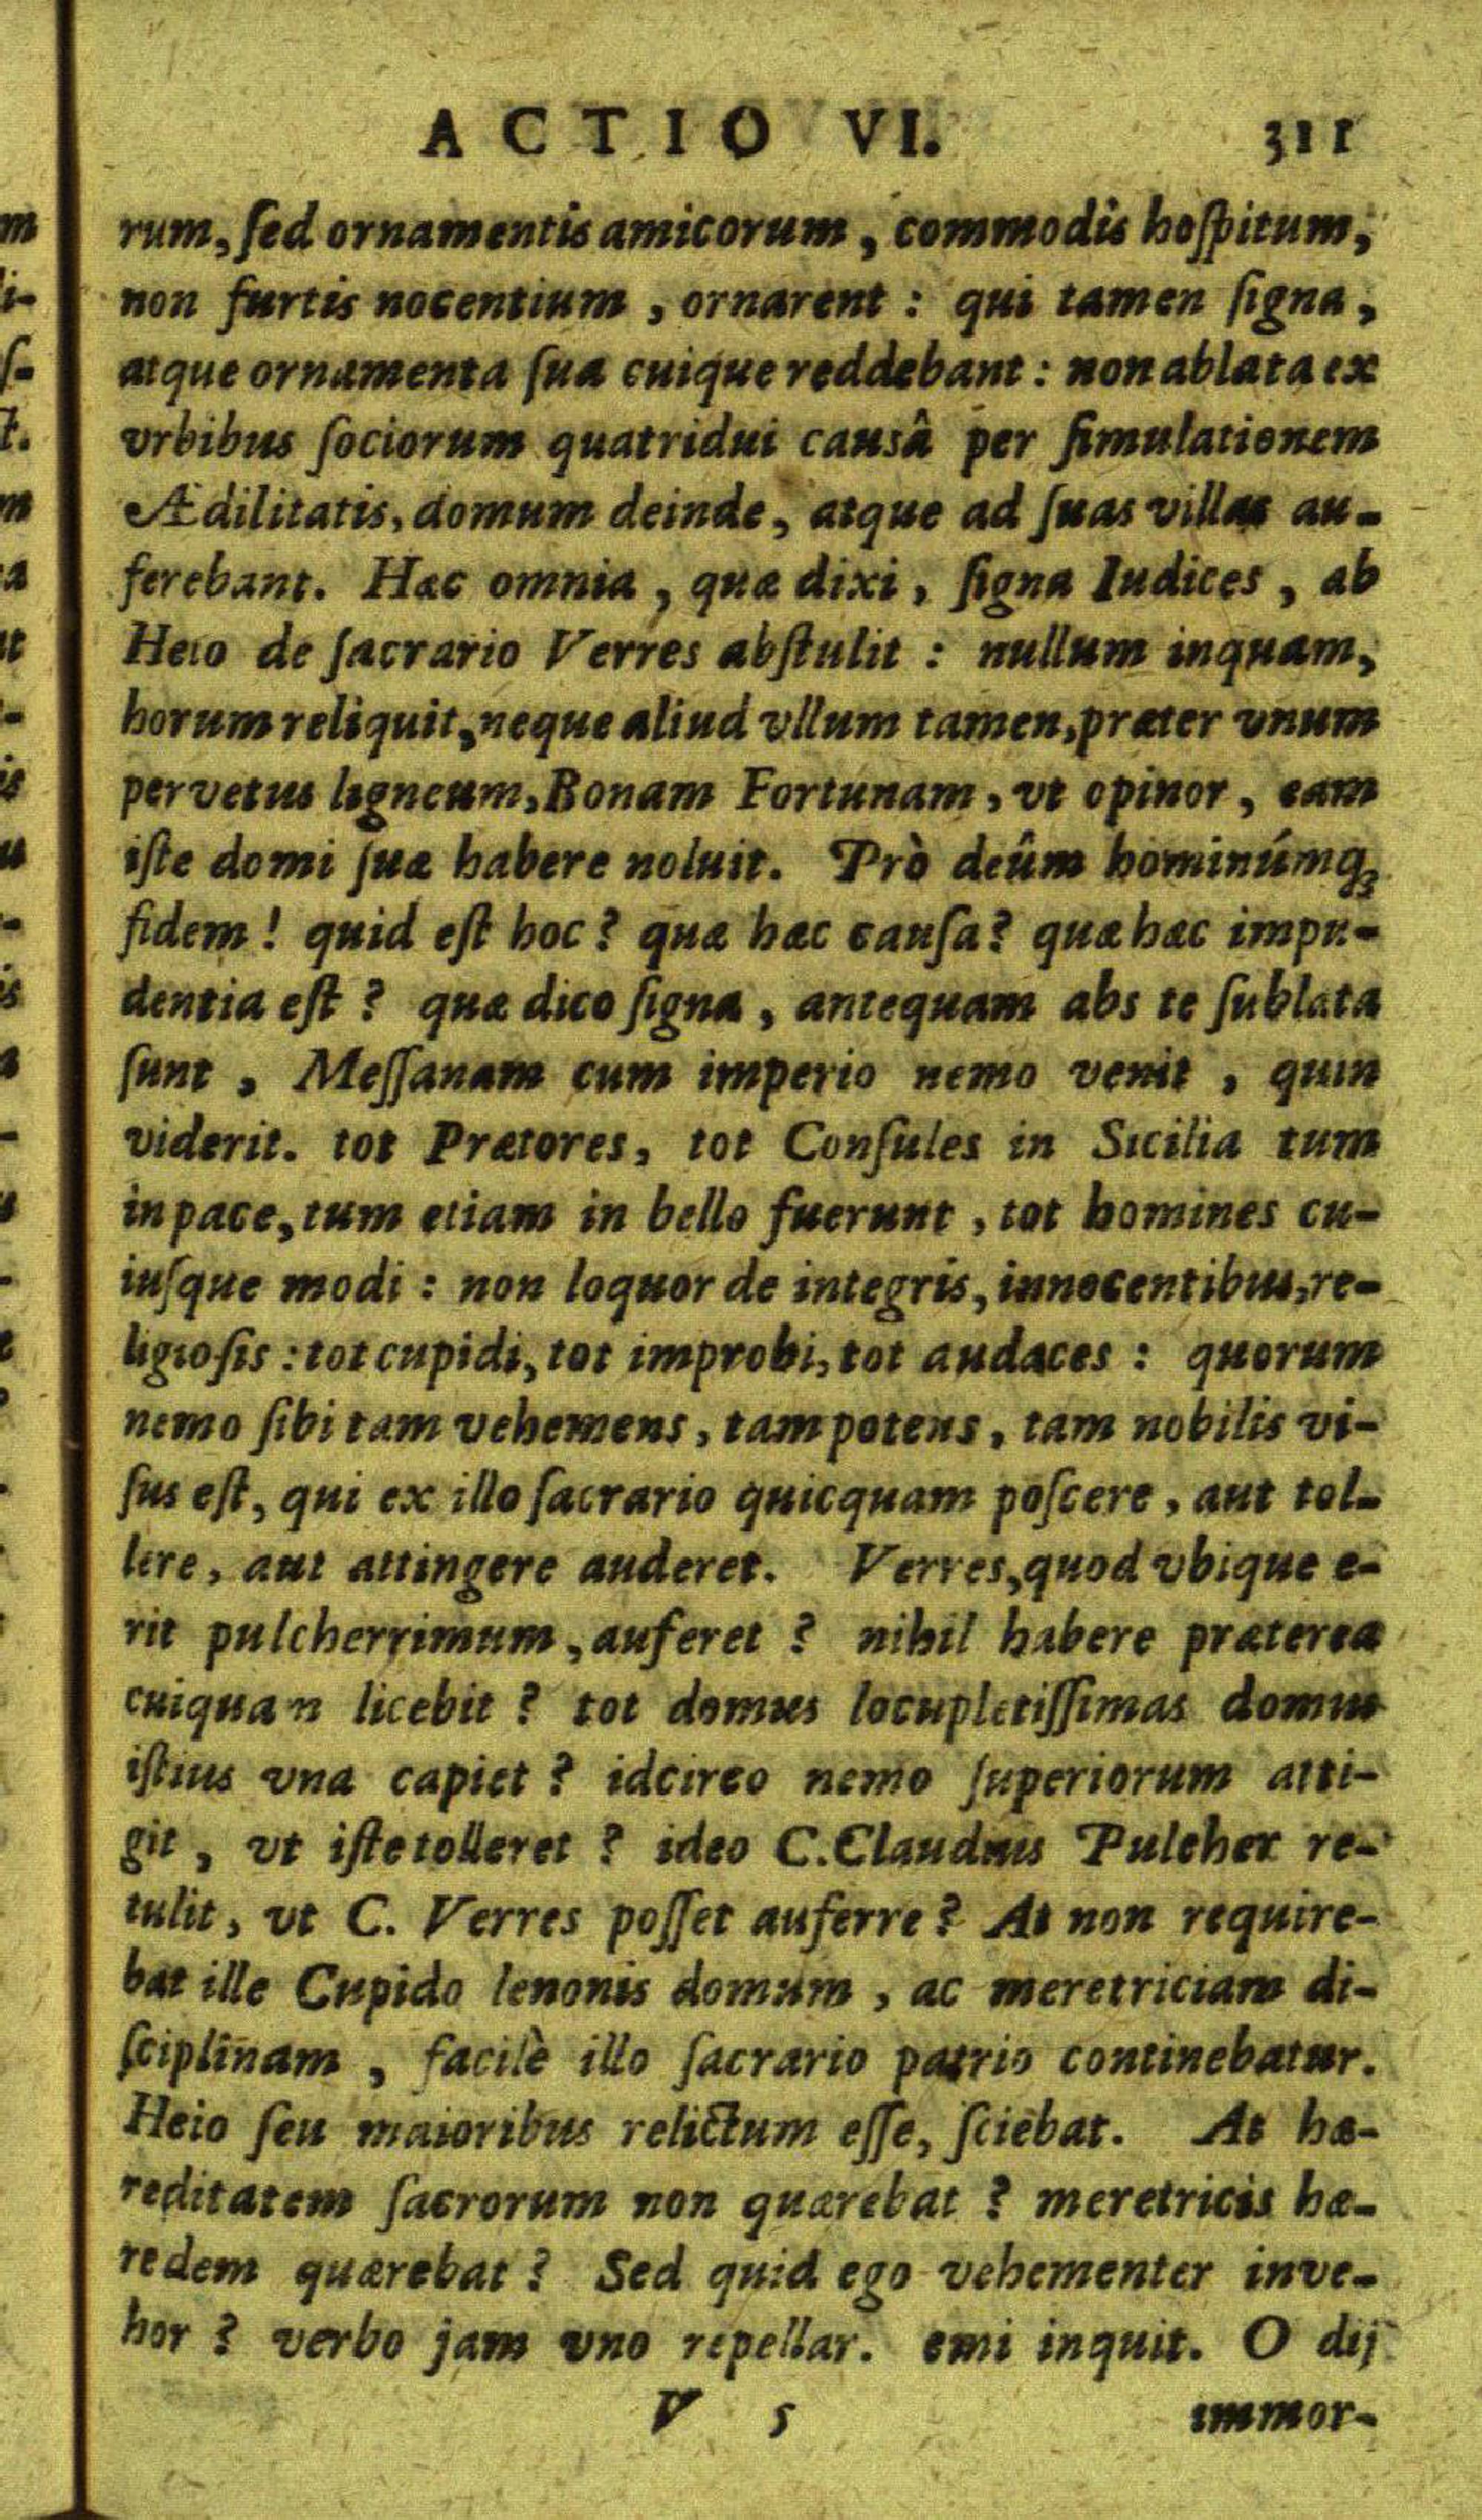 ACTIO VI. 311
rum, ſed ornamentis amicorum, commodis hoſpitum,
non furtis nocentium, ornarent: qui tamen ſigna,
atque ornamenta ſua cuique reddebant: non ablata ex
vrbibus ſociorum quatridui causâ per ſimulationem
Ædilitatis, domum deinde, atque ad ſuas villas au-
ferebant. Hæc omnia, quæ dixi, ſigna Iudices, ab
Heio de ſacrario Verres abſtulit: nullum inquam,
horum reliquit, neque aliud vllum tamen, præter vnum
pervetus ligneum, Bonam Fortunam, vt opinor, eam
iſte domi ſuæ habere noluit. Prò deûm hominúmq;
fidem! quid eſt hoc? quæ hæc cauſa? quæ hæc impu-
dentia eſt? quæ dico ſigna, antequam abs te ſublata
ſunt, Meſſanam cum imperio nemo venit, quin
viderit. tot Prætores, tot Conſules in Sicilia tum
in pace, tum etiam in bello fuerunt, tot homines cu-
iuſque modi: non loquor de integris, innocentibus, re-
ligioſis: tot cupidi, tot improbi, tot audaces: quorum
nemo ſibi tam vehemens, tam potens, tam nobilis vi-
ſus eſt, qui ex illo ſacrario quicquam poſcere, aut tol-
lere, aut attingere auderet. Verres, quod vbique e-
rit pulcherrimum, auferet? nihil habere præterea
cuiquam licebit? tot domus locupletiſſimas domus
iſtius vna capiet? idcirco nemo ſuperiorum atti-
git, vt iſte tolleret? ideo C. Claudius Pulcher re-
tulit, vt C. Verres poſſet auferre? At non require-
bat ille Cupido lenonis domum, ac meretriciam di-
ſciplinam, facilè illo ſacrario patrio continebatur.
Heio ſeu maioribus relictum eſſe, ſciebat. At hæ-
reditatem ſacrorum non quærebat? meretricis hæ-
redem quærebat? Sed quid ego vehementer inve-
hor? verbo jam vno repellar. emi inquit. O dij
V 5 immor-